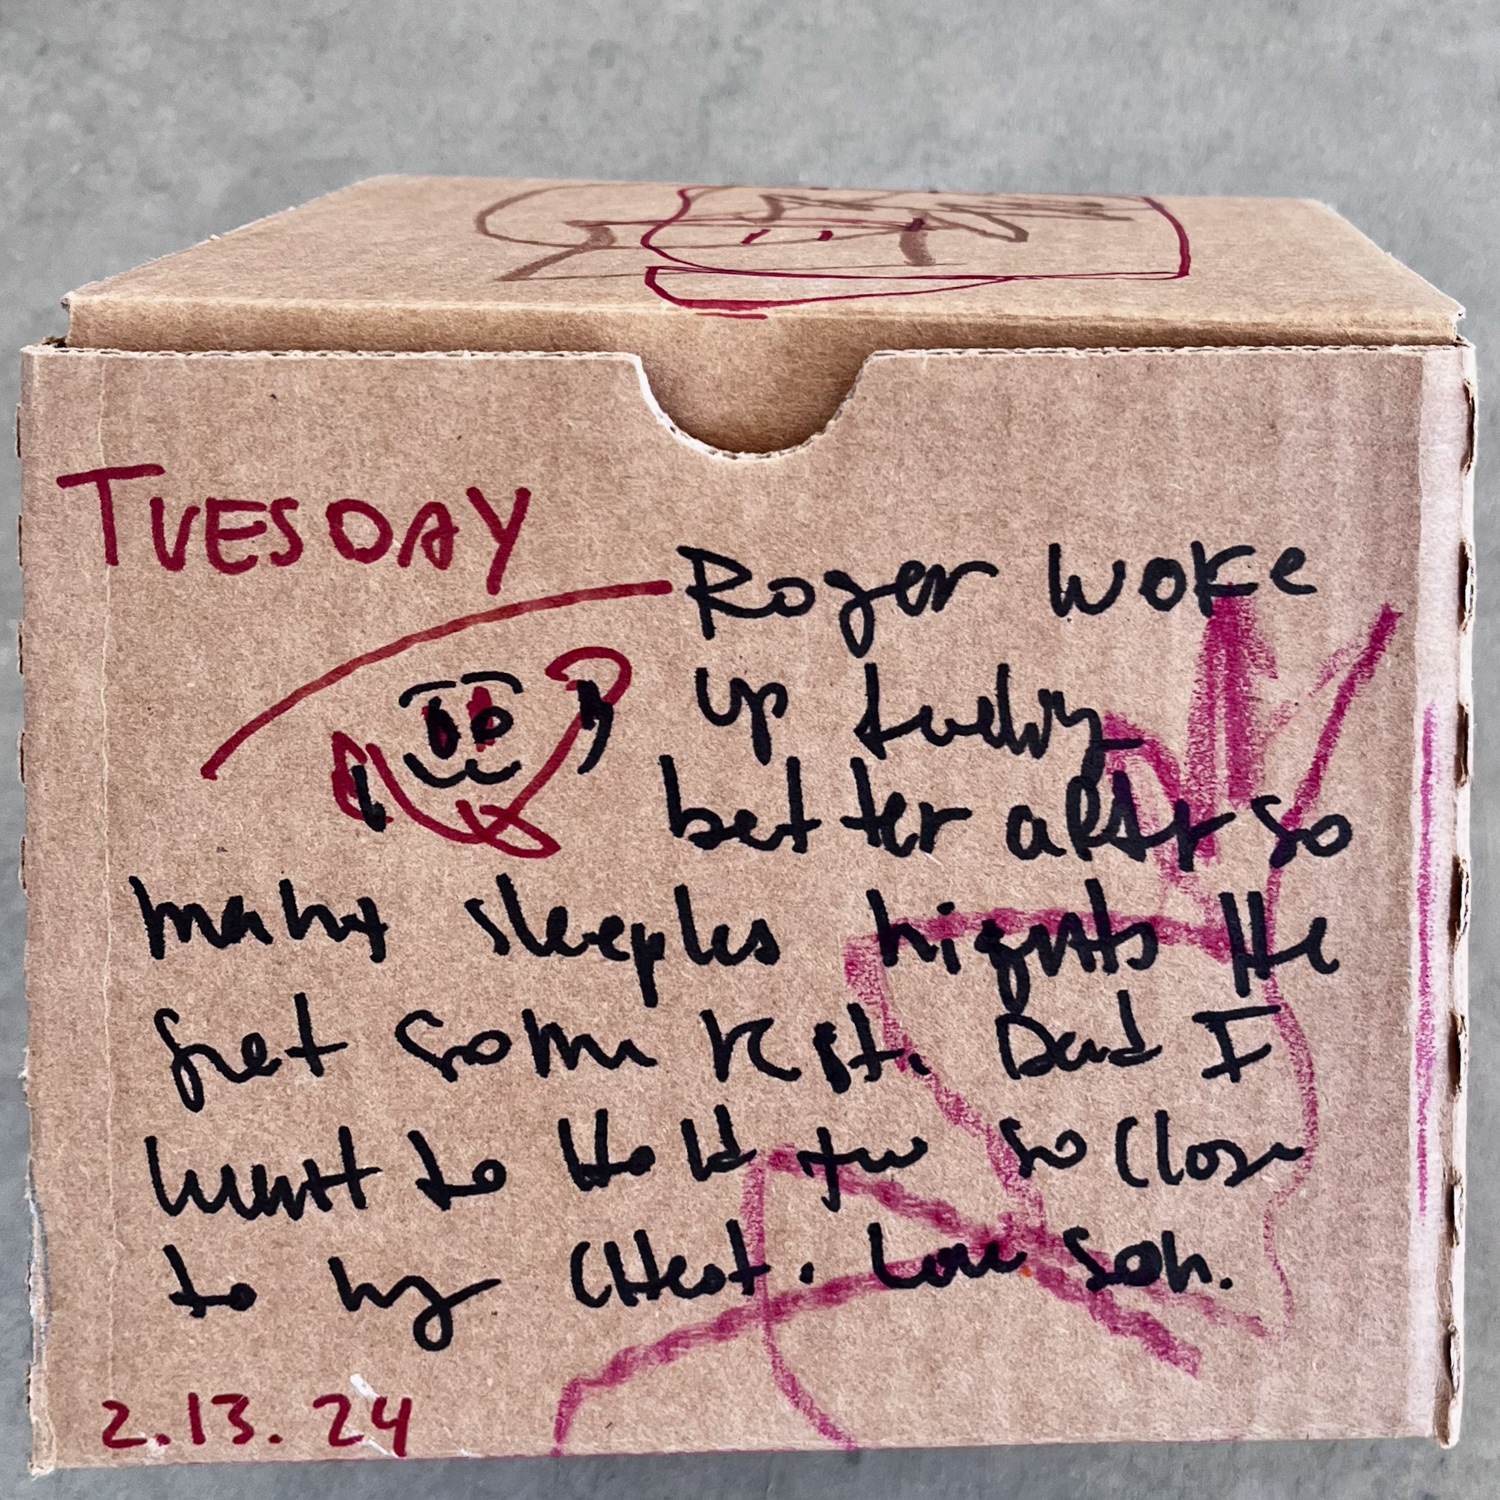 TUESDAY
Roger woke
up today
better after so
many sleepless nights He
get some rest. Dad I
want to Hold you so Close
to my CHest. Love son.
2.13.24